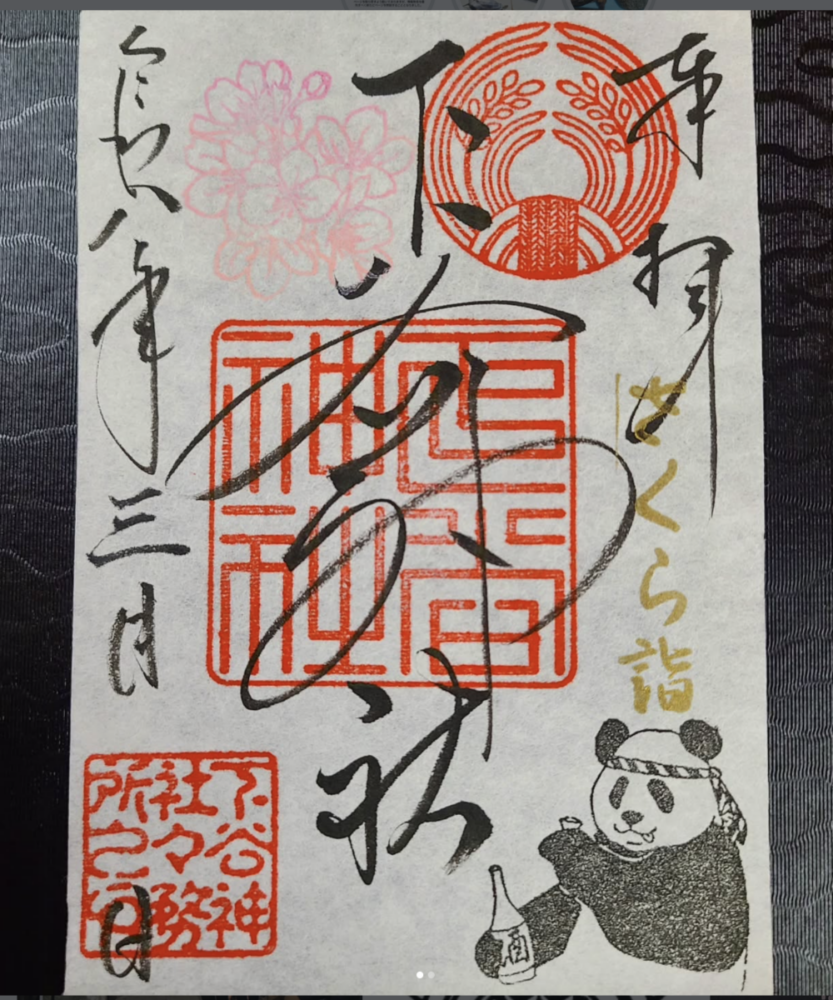 奉拝
さくら詣
下谷神社
下谷
神社
令和八年三月 日
下谷神
社々務
所之印
酒